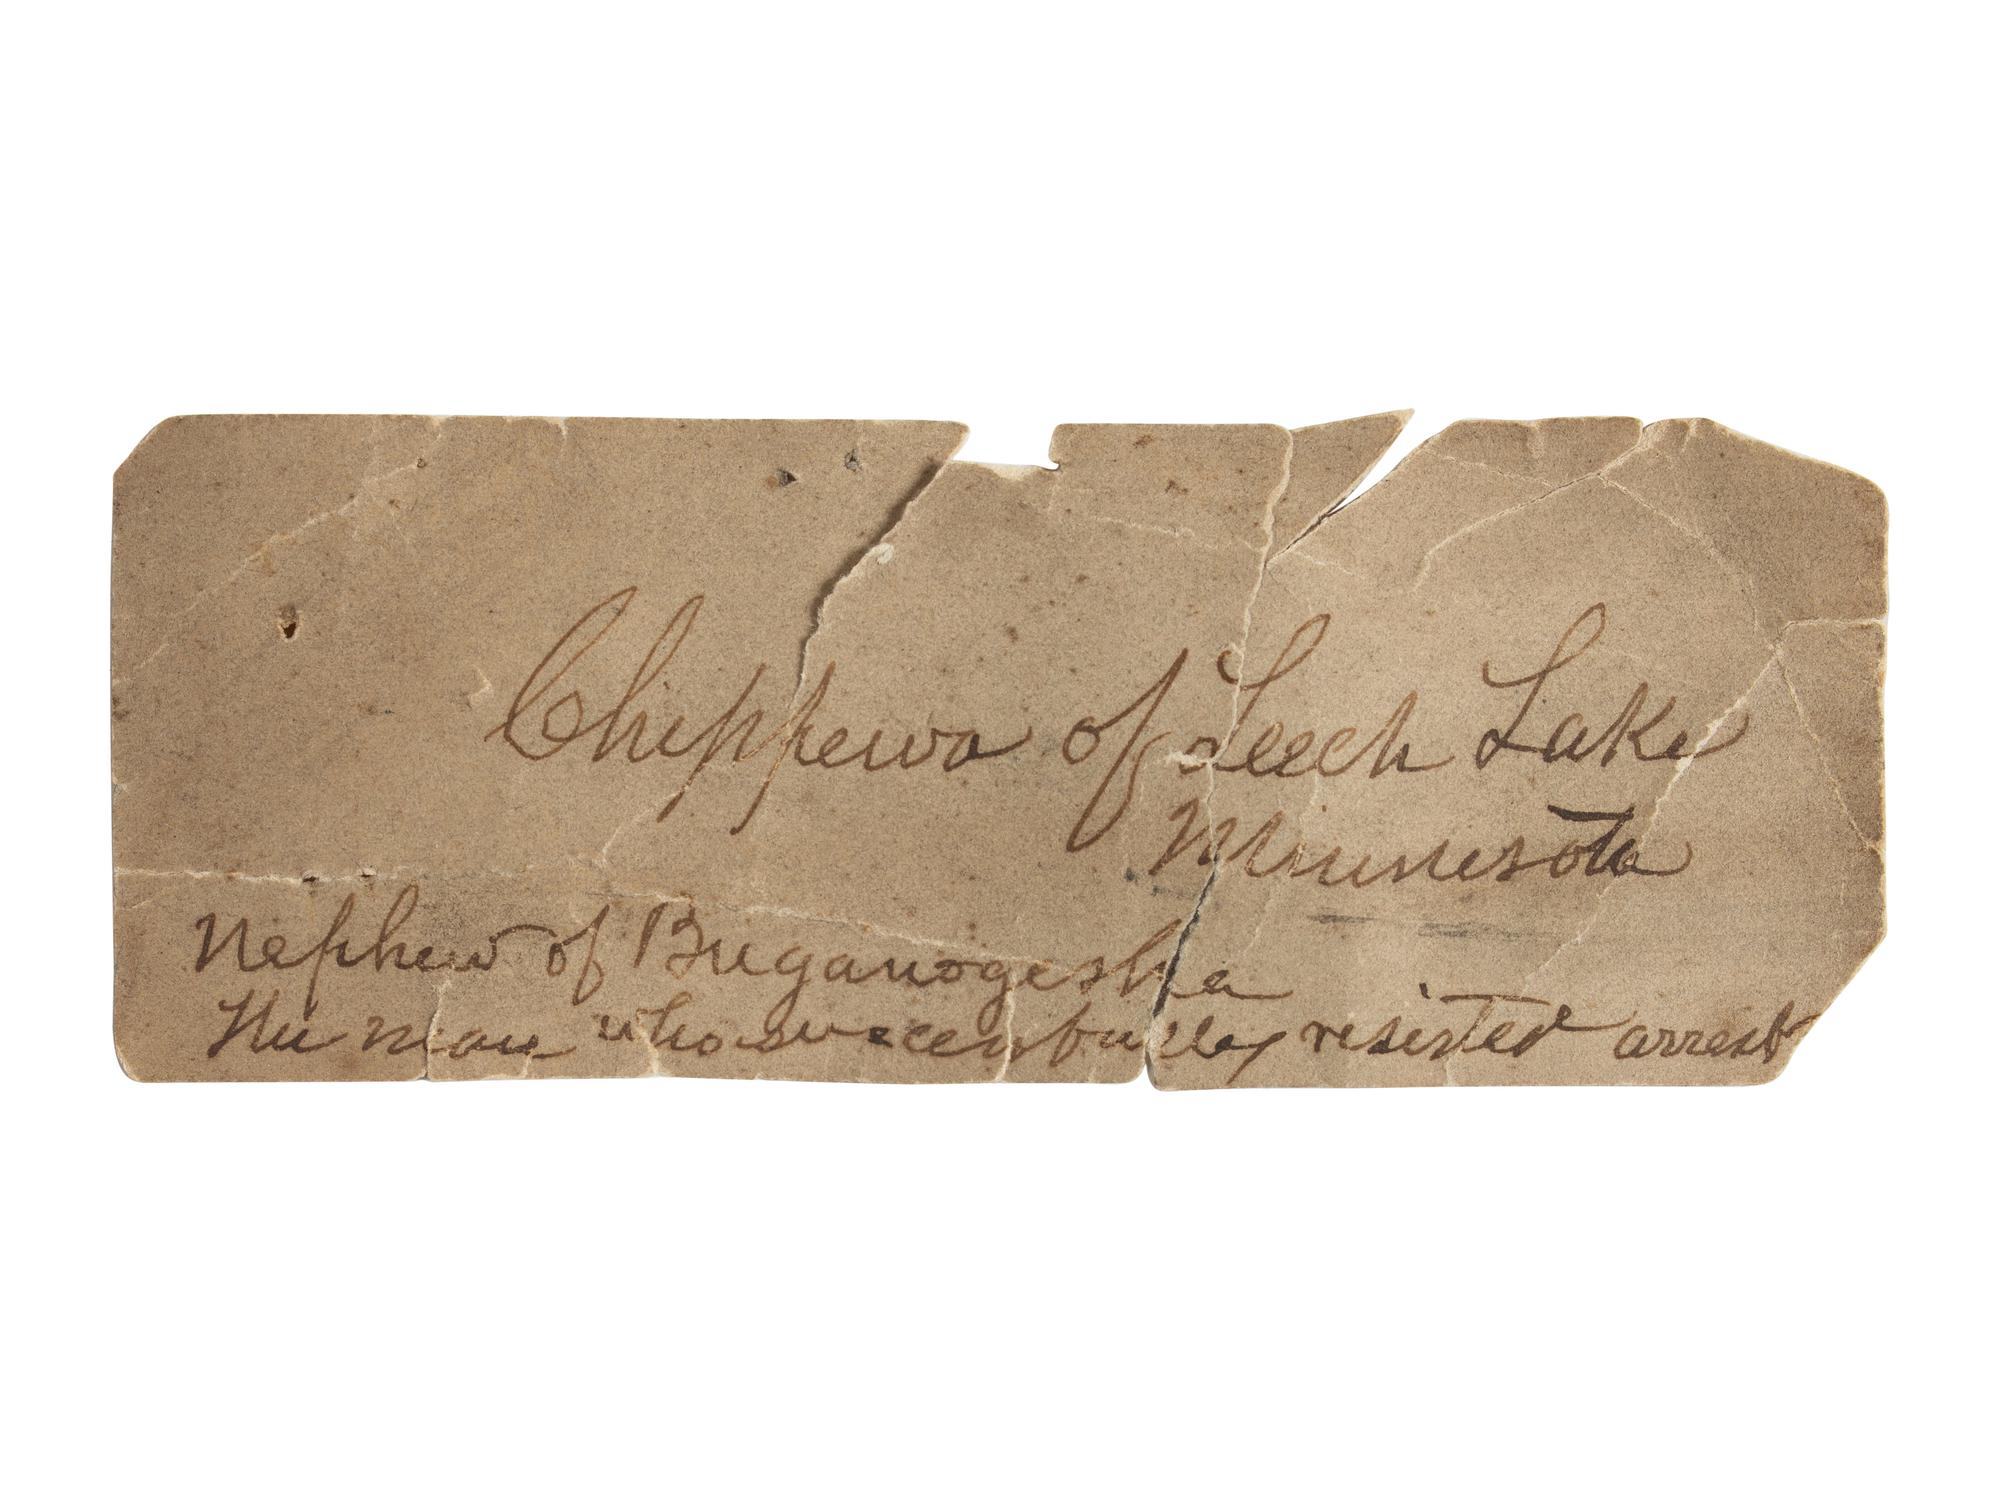 Chippewa of Leech Lake
Minnesota
Nephew of Buganogesha
The man who succenfully resisted arrest